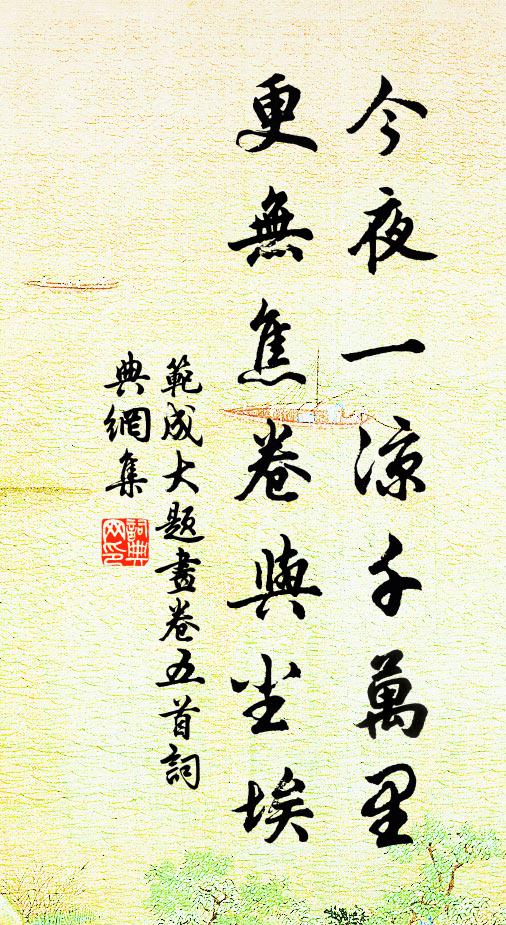 今夜一涼千萬里
更無焦卷與尘埃
範成大題畫卷五首詞
典網集
詞典
网印